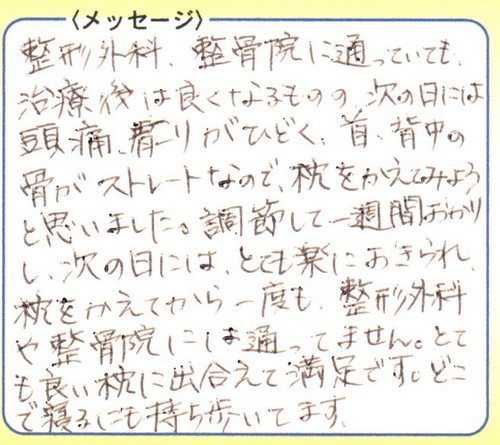 〈メッセージ〉
整形外科、整骨院に通っていても、
治療後は良くなるものの、次の日には
頭痛、肩コリがひどく、首、背中の
骨がストレートなので、枕をかえてみよう
と思いました。調節して一週間おかり
し、次の日には、とても楽におきられ、
枕をかえてから一度も、整形外科
や整骨院には通ってません。とて
も良い枕に出合えて満足です。どこ
で寝るにも持ち歩いてます。